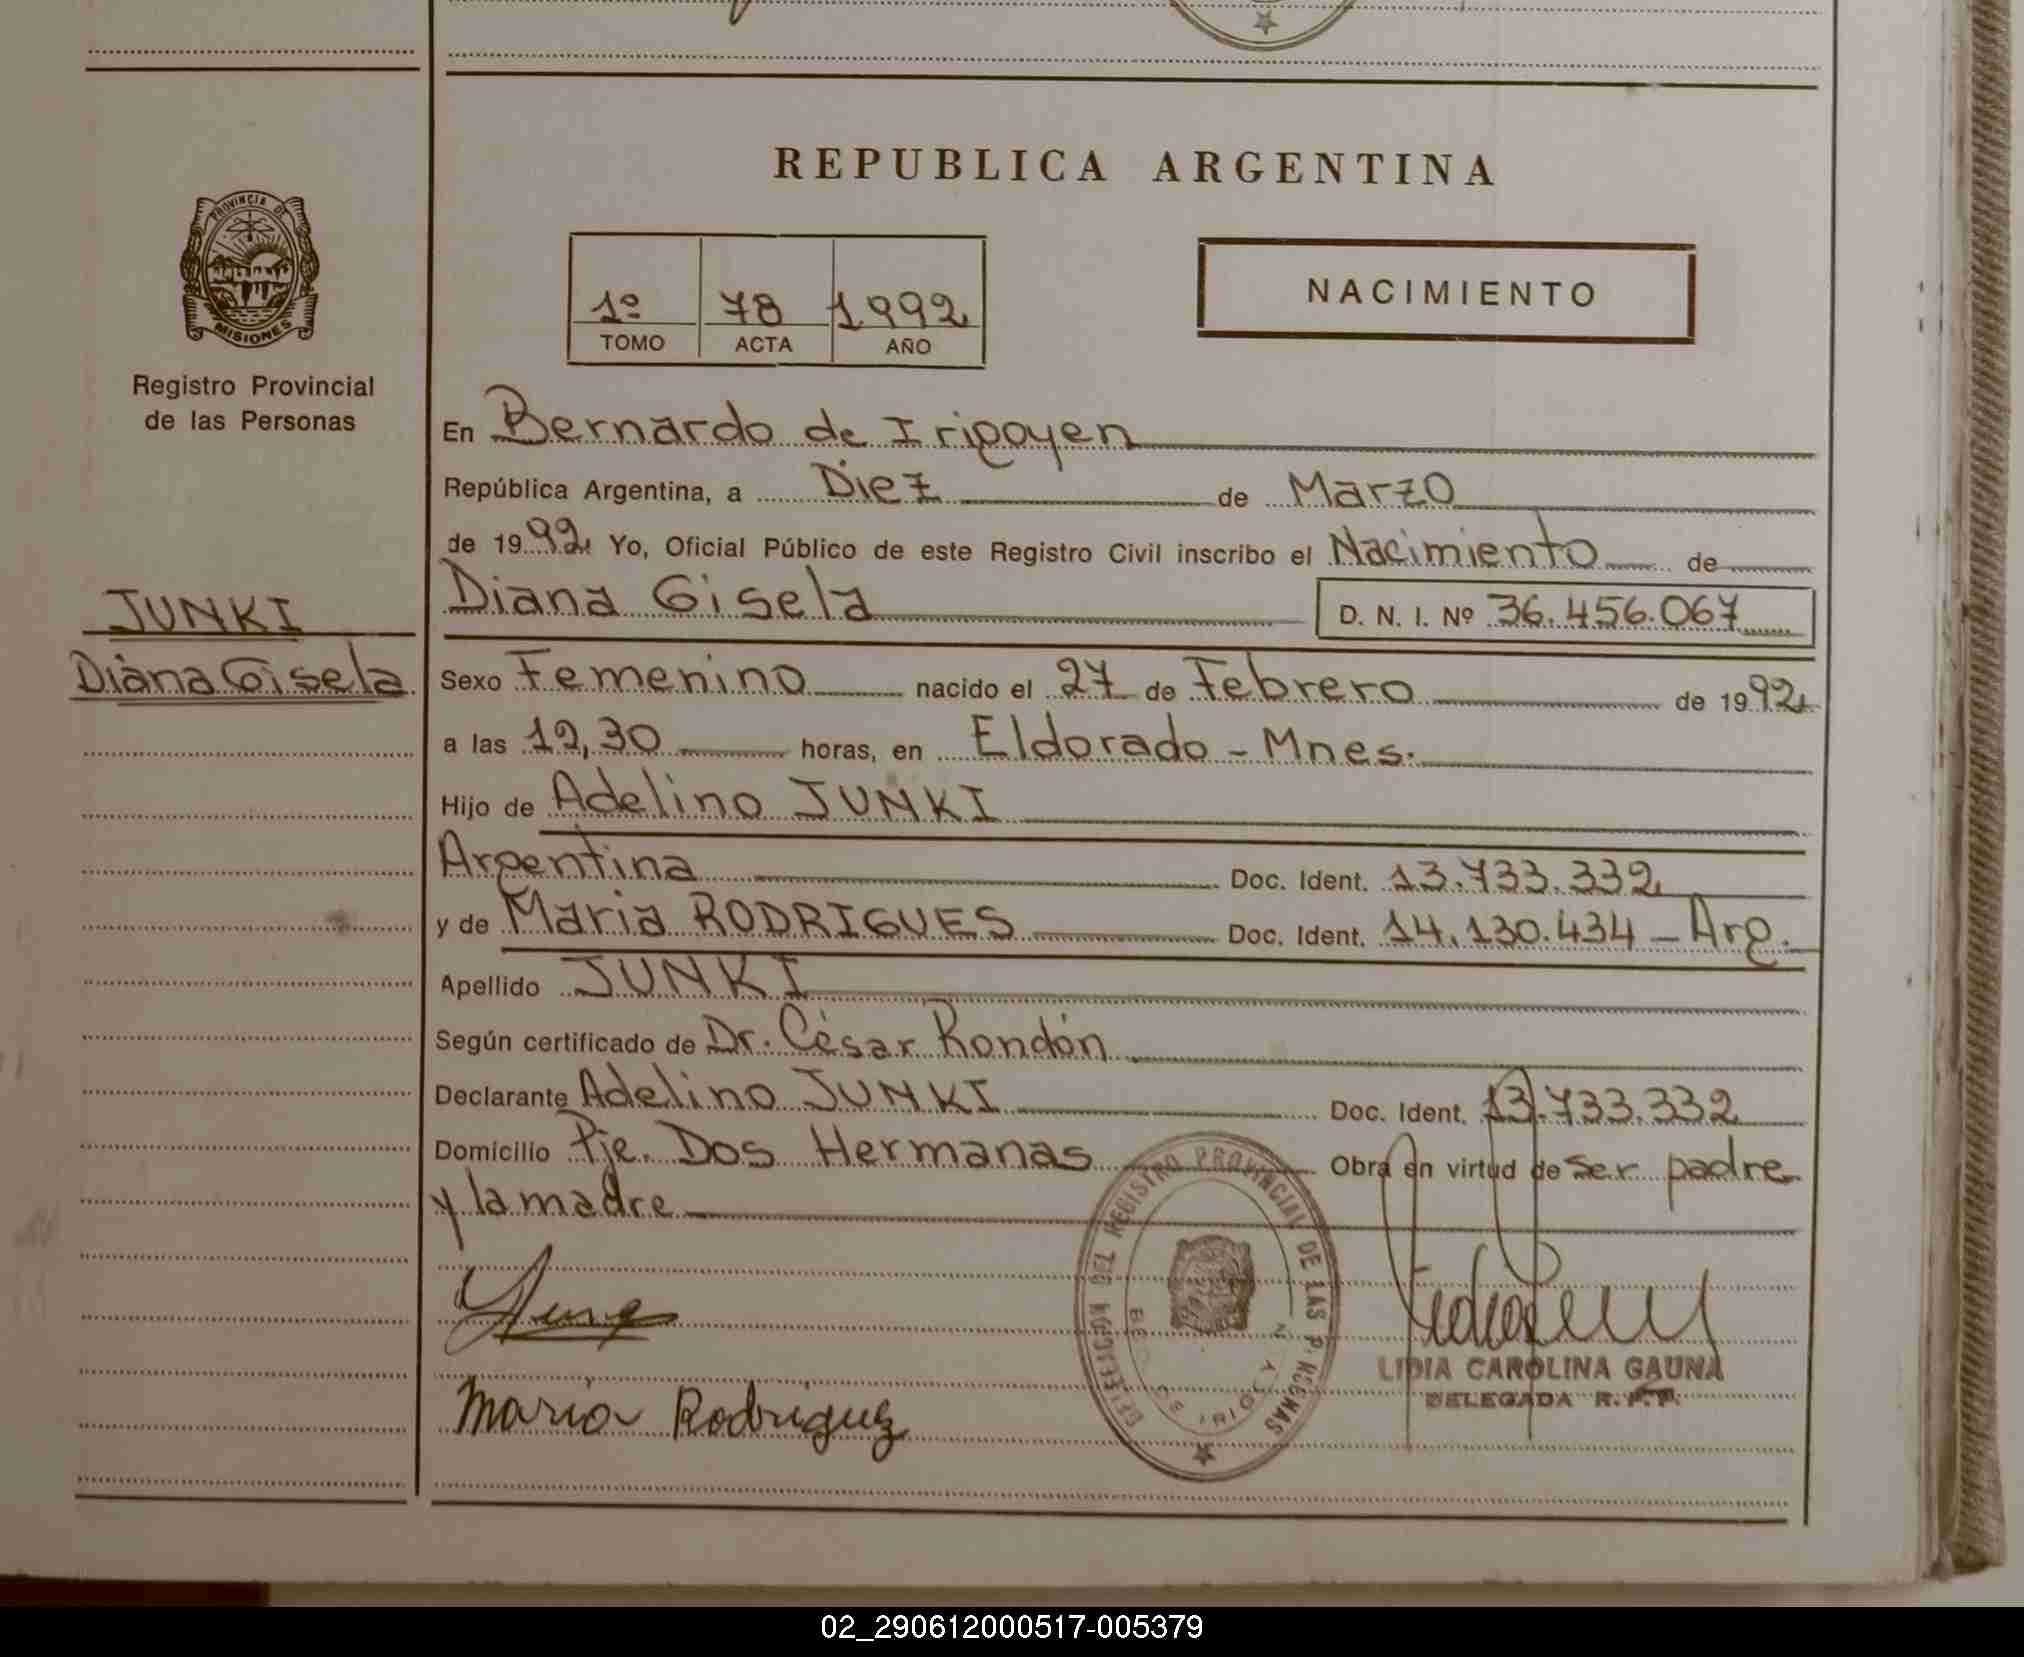 REPUBLICA ARGENTINA
PROVINCIA DE
MISIONES
Registro Provincial
de las Personas
1º 78 1992
TOMO ACTA AÑO
NACIMIENTO
En Bernardo de Irigoyen
República Argentina, a Diez de Marzo
de 1992 Yo, Oficial Público de este Registro Civil inscribo el Nacimiento de
Diana Gisela D. N. I. Nº 36.456.067
JUNKI
Diana Gisela
Sexo Femenino nacido el 27 de Febrero de 1992
a las 12,30 horas, en Eldorado - Mnes.
Hijo de Adelino JUNKI
Argentina Doc. Ident. 13.733.332
y de Maria RODRIGUES Doc. Ident. 14.130.434 - Arg.
Apellido JUNKI
Según certificado de Dr. César Rondón
Declarante Adelino JUNKI Doc. Ident. 13.733.332
Domicilio Pje. Dos Hermanas Obra en virtud de ser padre
y la madre
DEL REGISTRO PROVINCIAL DE LAS
DE IRIGOYEN
LIDIA CAROLINA GAUNA
DELEGADA R.P.P.
Maria Rodriguez
02_290612000517-005379